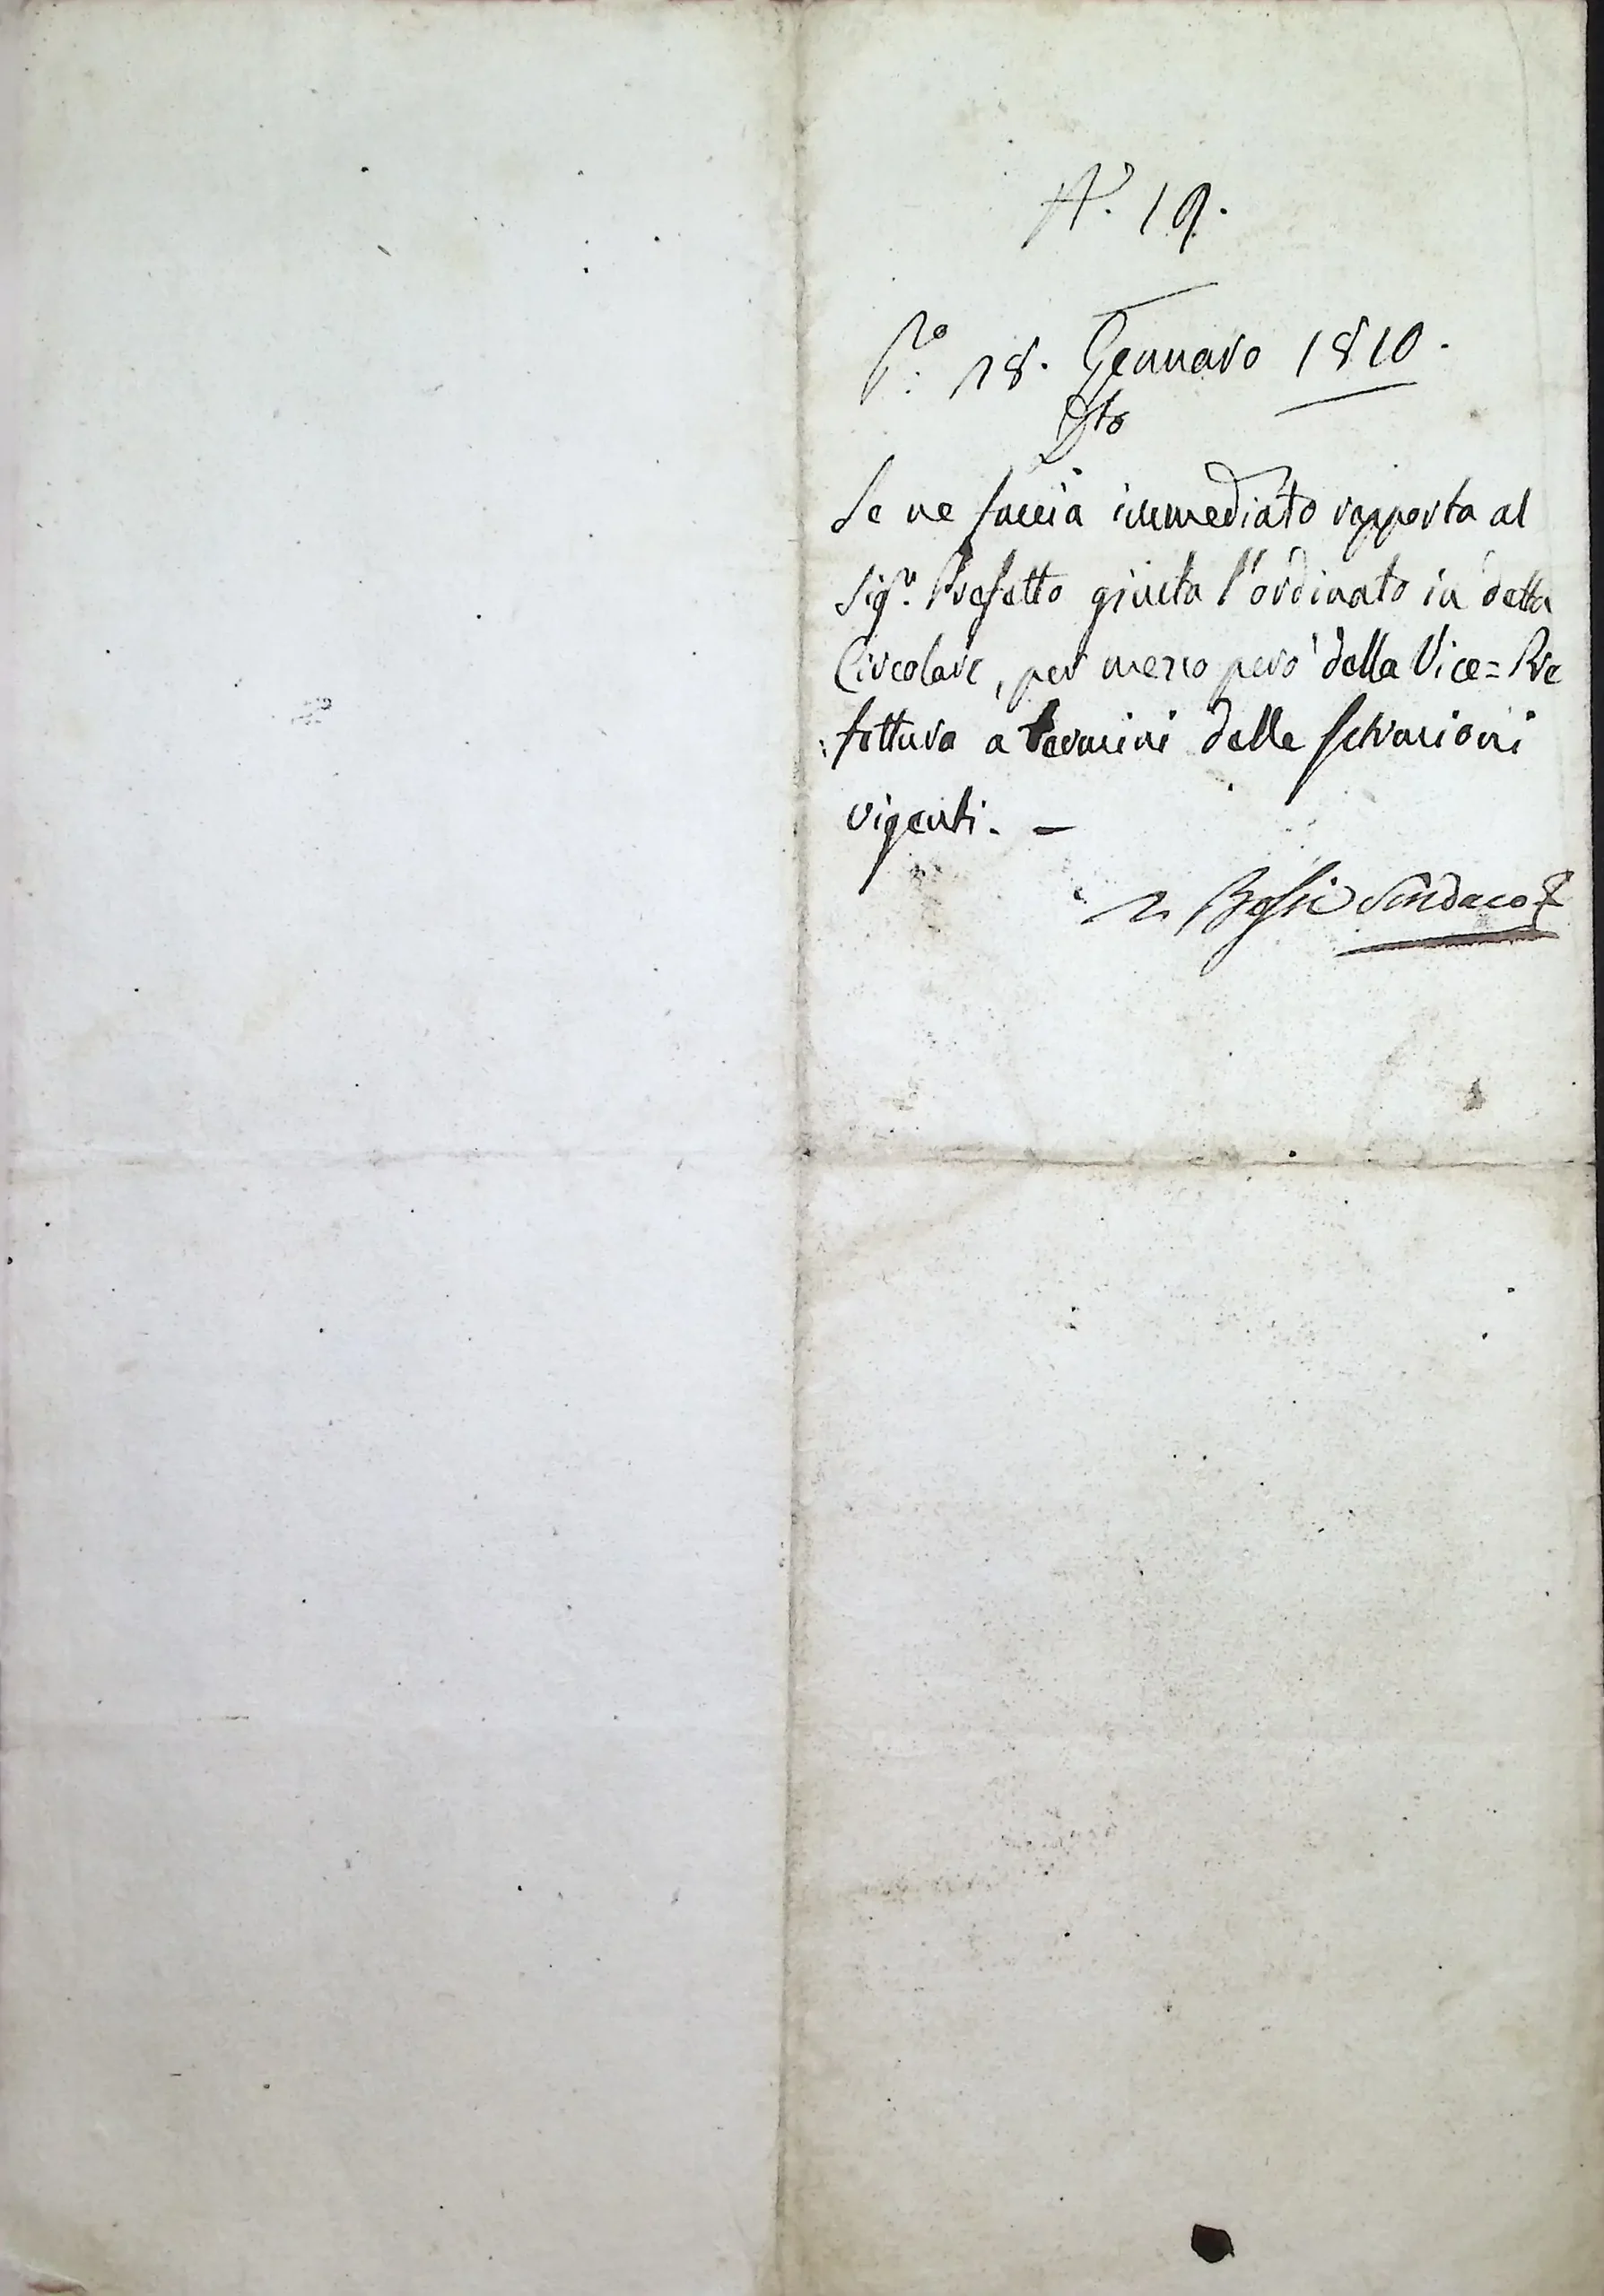 N.° 19.
P.° 18. Gennaro 1810.
Se ne faccia immediato rapporto al
Sig.r Prefetto giusta l'ordinato in detta
Circolare, per mezzo però della Vice=Pre
:fettura a termini delle Istruzioni
vigenti. —
Bossi Sindaco